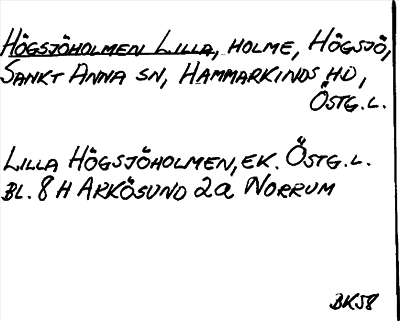 HÖGSJÖHOLMEN LILLA, HOLME, HÖGSJÖ,
SANKT ANNA SN, HAMMARKINDS HD,
ÖSTG.L.
LILLA HÖGSJÖHOLMEN, EK. ÖSTG.L.
BL. 8 H ARKÖSUND 2a NORRUM
BK58